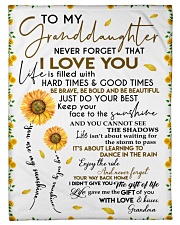 TO MY
Granddaughter
NEVER FORGET THAT
I LOVE YOU
Life is filled with
HARD TIMES & GOOD TIMES
BE BRAVE, BE BOLD AND BE BEAUTIFUL
JUST DO YOUR BEST
Keep your
face to the sunshine
AND YOU CANNOT SEE
THE SHADOWS
Life isn't about waiting for
the storm to pass
IT'S ABOUT LEARNING TO
DANCE IN THE RAIN
Enjoy the ride
And never forget
YOUR WAY BACK HOME
I DIDN'T GIVE YOU The gift of life
Life gave me the GIFT OF you
WITH LOVE & kisses
Grandma
you are my sunshine